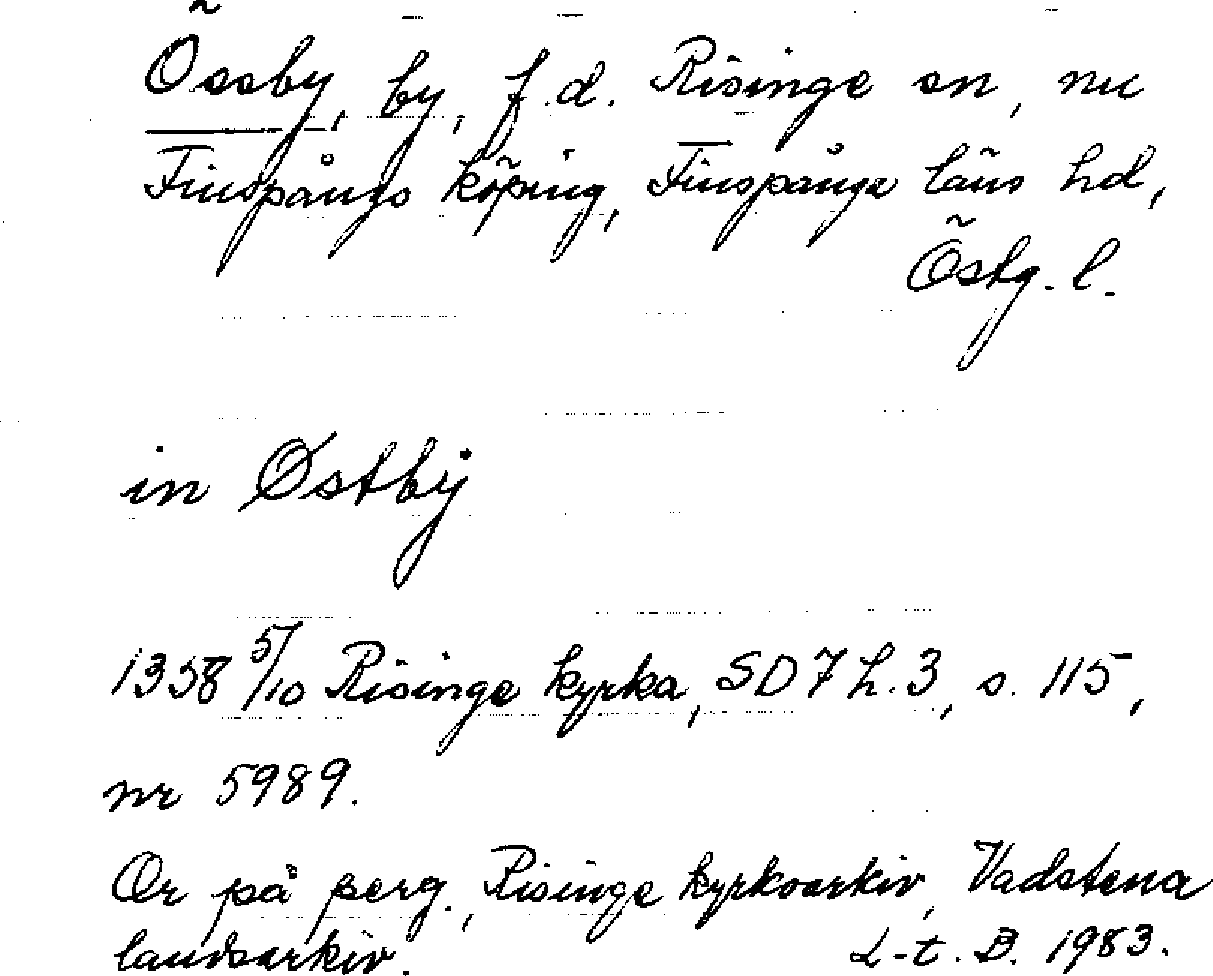 Össby, by, f.d. Risinge sn, nu
Finspångs köping, Finspånga läns hd,
Östg. l.
in Østbÿ
1358 5/10 Risinge kyrka, SD 7 h. 3, s. 115,
nr 5989.
Or på perg., Risinge kyrkoarkiv, Vadstena
landsarkiv.
L-t. B. 1983.